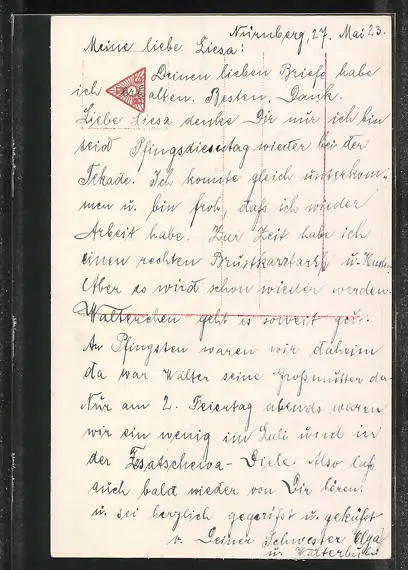 Nürnberg, 27. Mai 23.
Meine liebe Liesa!
Deinen lieben Briefe habe
ich alten. Besten Dank.
Liebe Liesa denke Dir mir ich bin
seid Pfingsdiesentag wieder bei der
Tekade. Ich konnte gleich unterkom-
men u. bin froh, daß ich wieder
Arbeit habe. Zur Zeit habe ich
einen rechten Brustkarztarrh u.
Aber es wird schon wieder werden.
Walterchen geht es soweit gut.
An Pfingsten waren wir daheim
da war Walter seine Großmutter da
Nur am 2. Feiertag abends waren
wir ein wenig im Luli und in
der Diele. Also laß
auch bald wieder von Dir hören.
u. sei herzlich gegrüßt u. geküßt
v. Deiner Schwester Olga
u. Walterbub